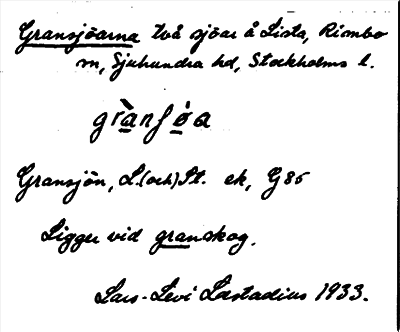 Gransjöarna två sjöar å Lista, Rimbo
sn, Sjuhundra hd, Stockholms l.
Gransjön, L.(och)St. ek, G85
Ligger vid granskog.
Lars-Levi Læstadius 1933.